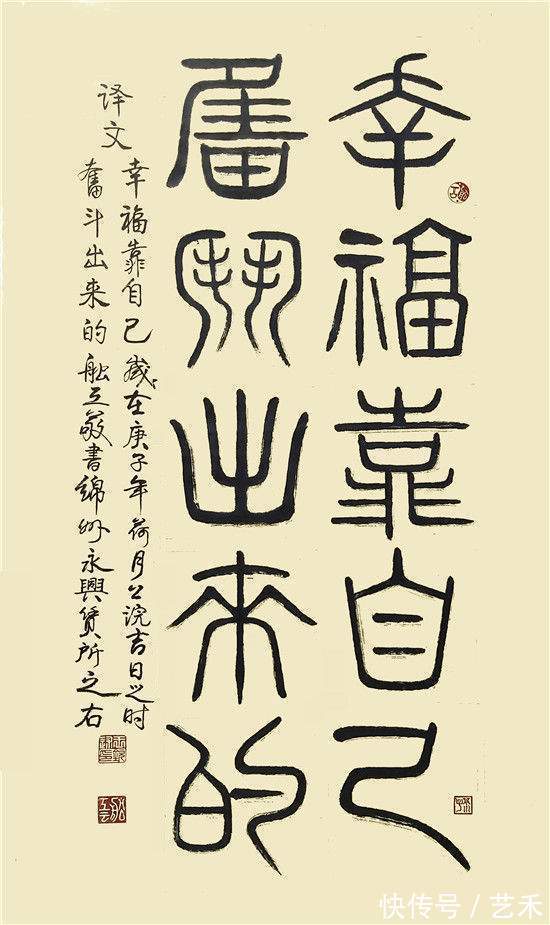 幸福靠自己
奮鬥出来的
译文
幸福靠自己 岁在庚子年荷月上浣吉日之时
奮斗出来的 舩工敬書綿州永興赁所之右
快传号/艺禾